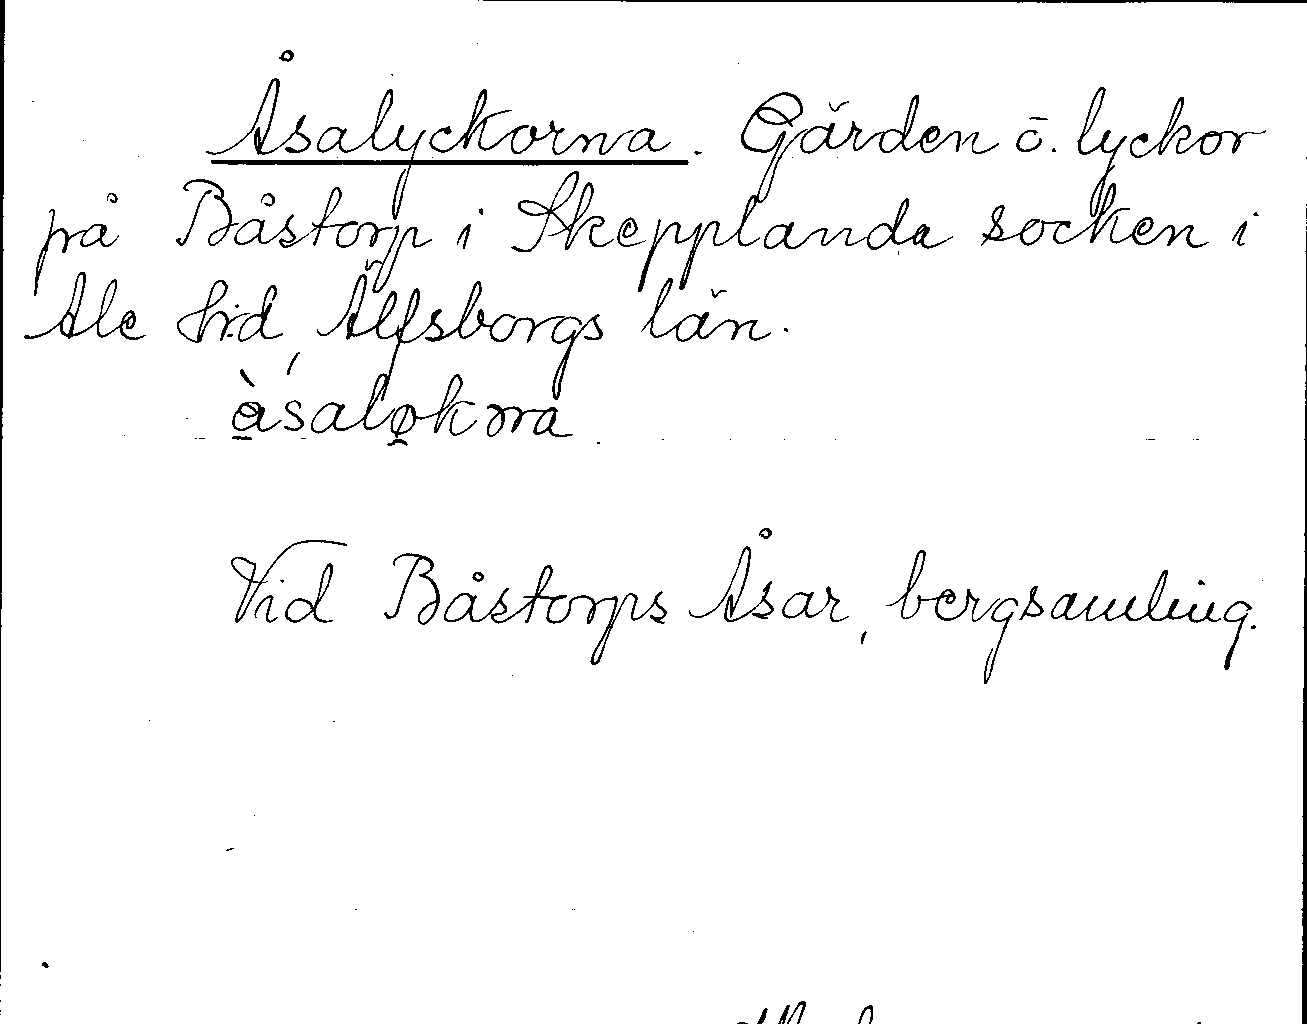 Åsalyckorna. Gärden o. lyckor
på Båstorp i Skepplanda socken i
Ale hrd, Älfsborgs län.
Vid Båstorps Åsar, bergsamling.